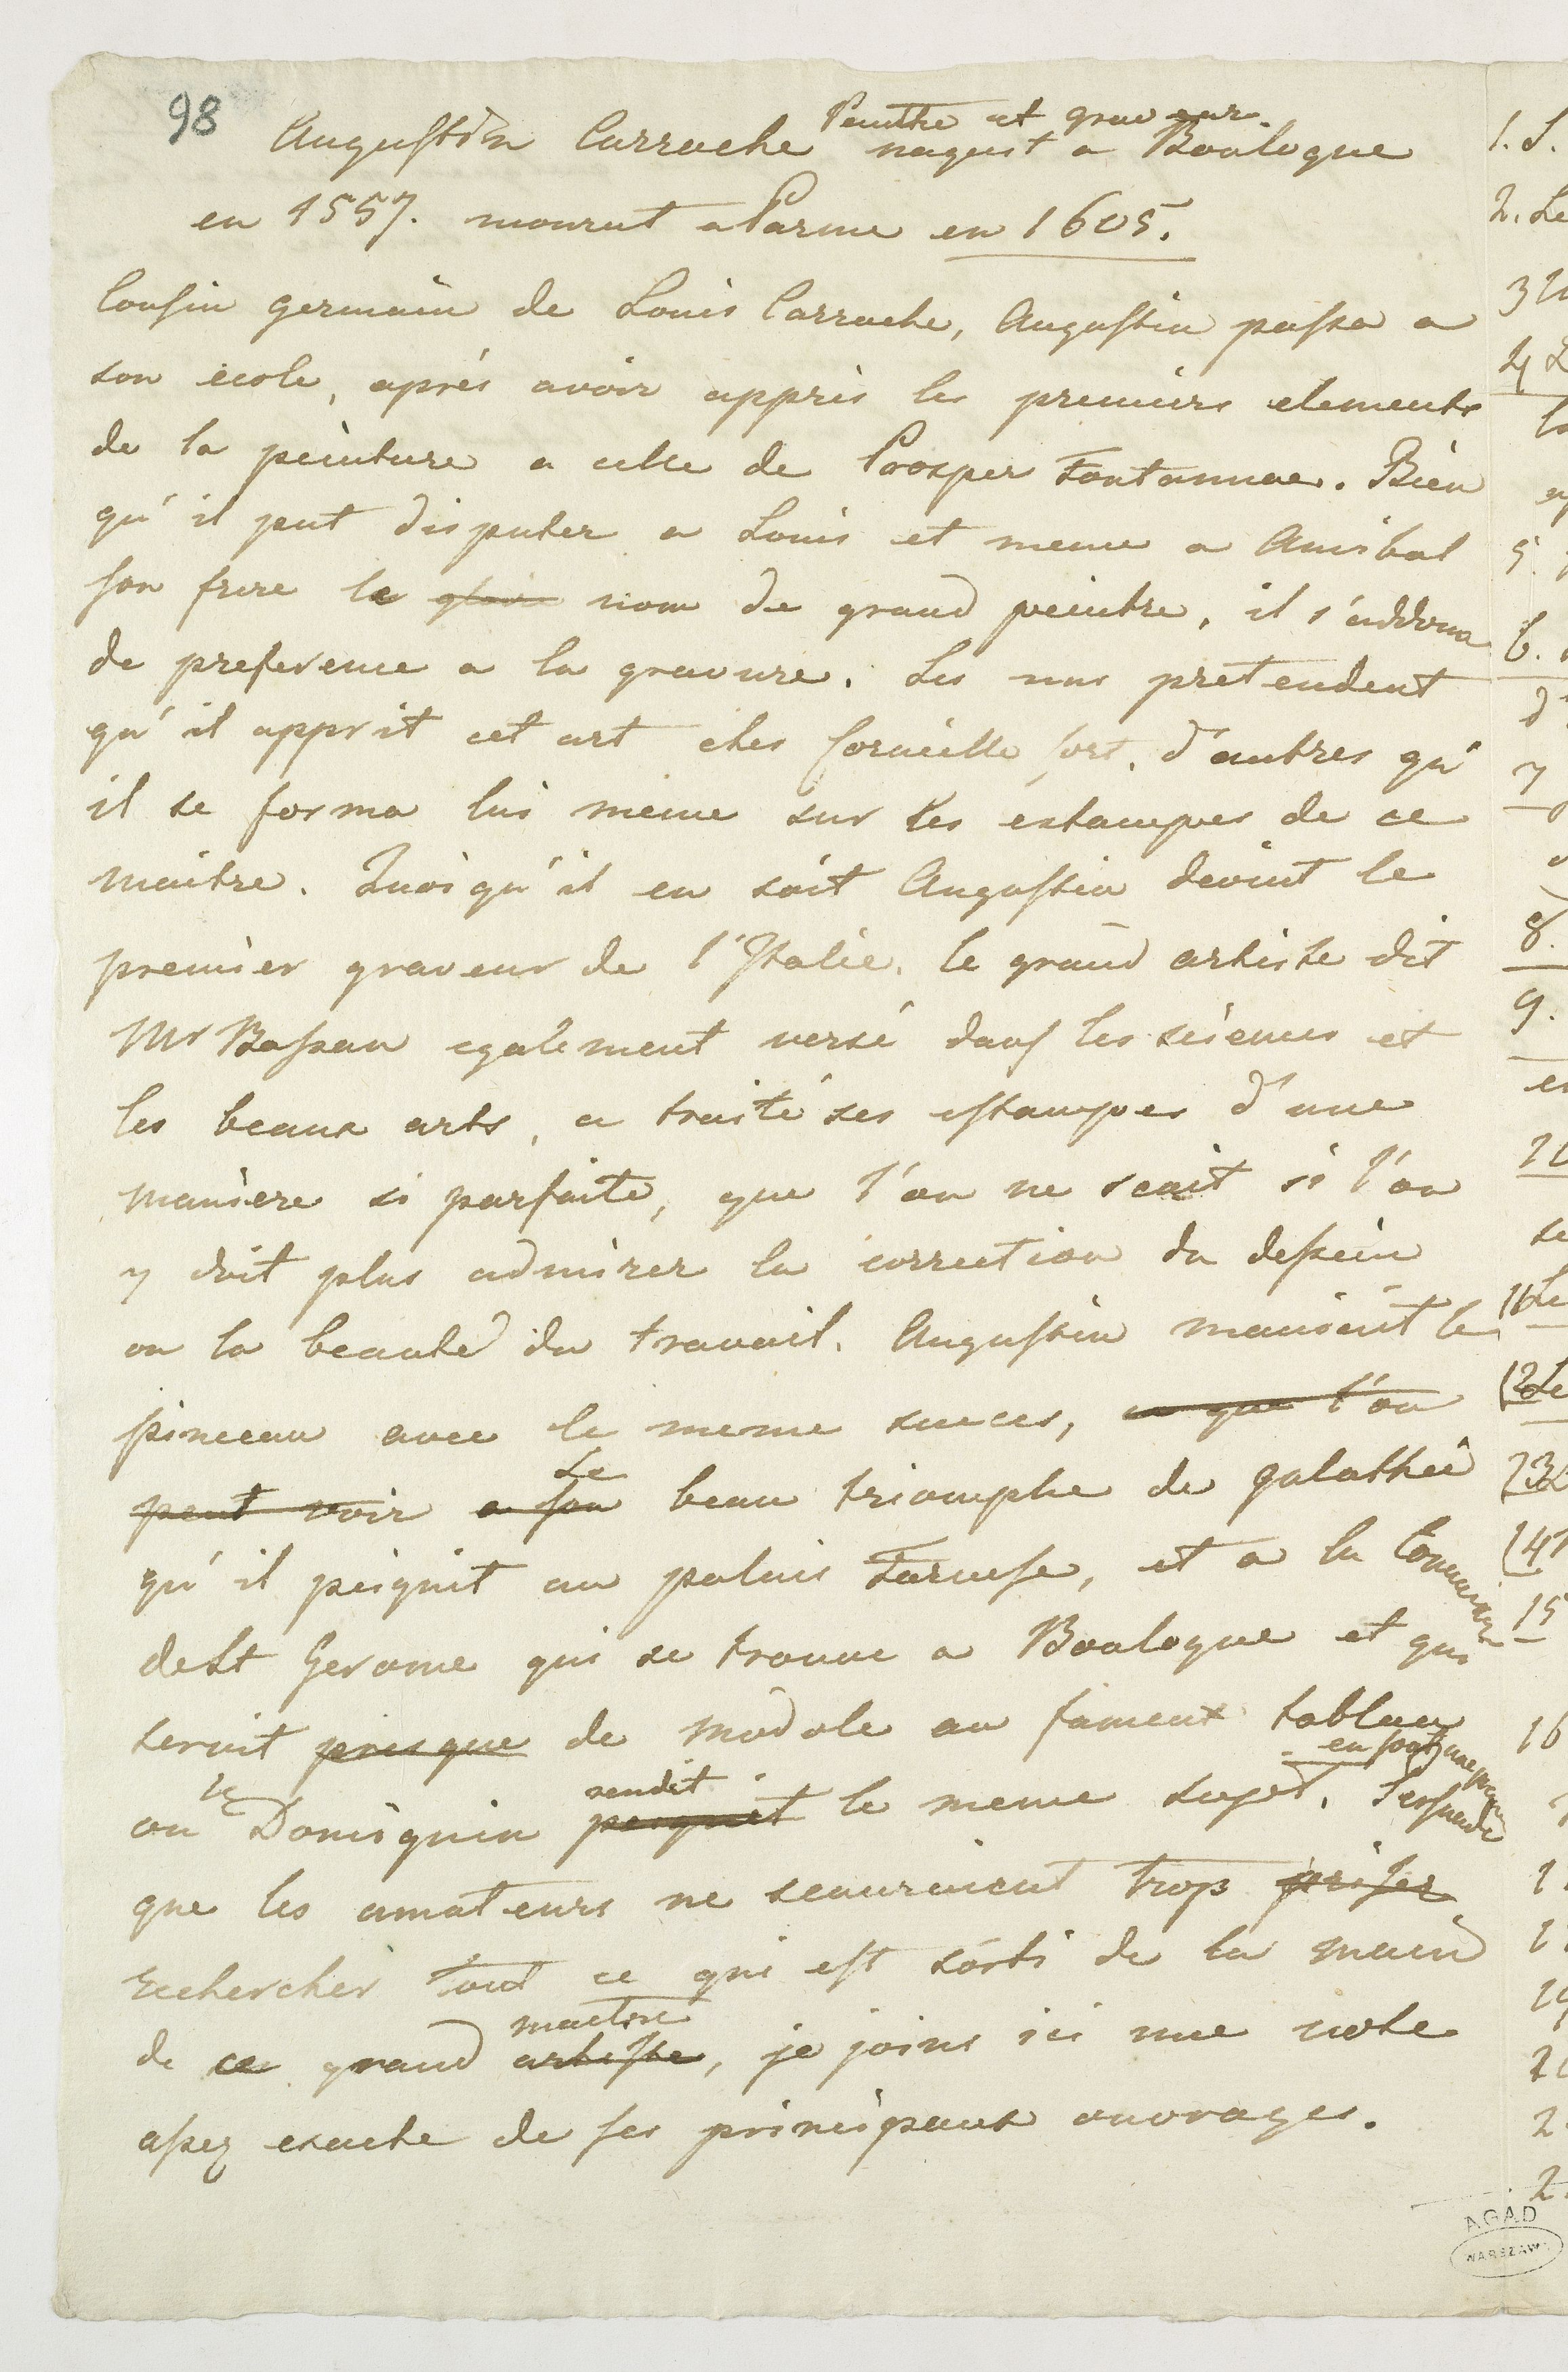 98
Peintre et graveur.
Augustin Carrache naquit a Boulogne
en 1557. mourut a Parme en 1605.
Cousin germain de Louis Carrache, Augustin passa a
son école, après avoir appris les premiers elements
de la peinture a celle de Prosper Fontannae. Bien
qu'il put disputer a Louis et meme a Anibal
son frere le nom de grand peintre, il s'addona
de preference a la gravure. Les uns pretendent
qu'il apprit cet art ches Corneille Cort. d'autres qu'
il se forma lui meme sur les estampes de ce
maitre. Quoiqu'il en soit Augustin devint le
premier graveur de l'Italie. Ce grand artiste dit
Mr Bassan egalement versé dans les sciences et
les beaux arts, a traité ses estampes d'une
maniere si parfaite, que l'on ne scait si l'on
y doit plus admirer la correction du dessein
ou la beauté du travail. Augustin manioit le
pinceau avec le meme succes, ce que l'on
peut voir a son Le beau triomphe de galathée
qu'il peignit au palais Farnese, et a la Communion
de St Gerome qui se trouve a Boulogne et qui
servit presque de modele au fameux tableau
en sont une preuve
ou le Domiquin peignit rendit le meme sujet. Persuadé
que les amateurs ne scauroient trop priser
rechercher tout ce qui est sorti de la main
de ce grand artiste maitre, je joins ici une note
assez exacte de ses principaux ouvrages.
1. S.
2. Le
5.
6.
7
8.
9.
12 Le
15
16
AGAD
WARSZAWA